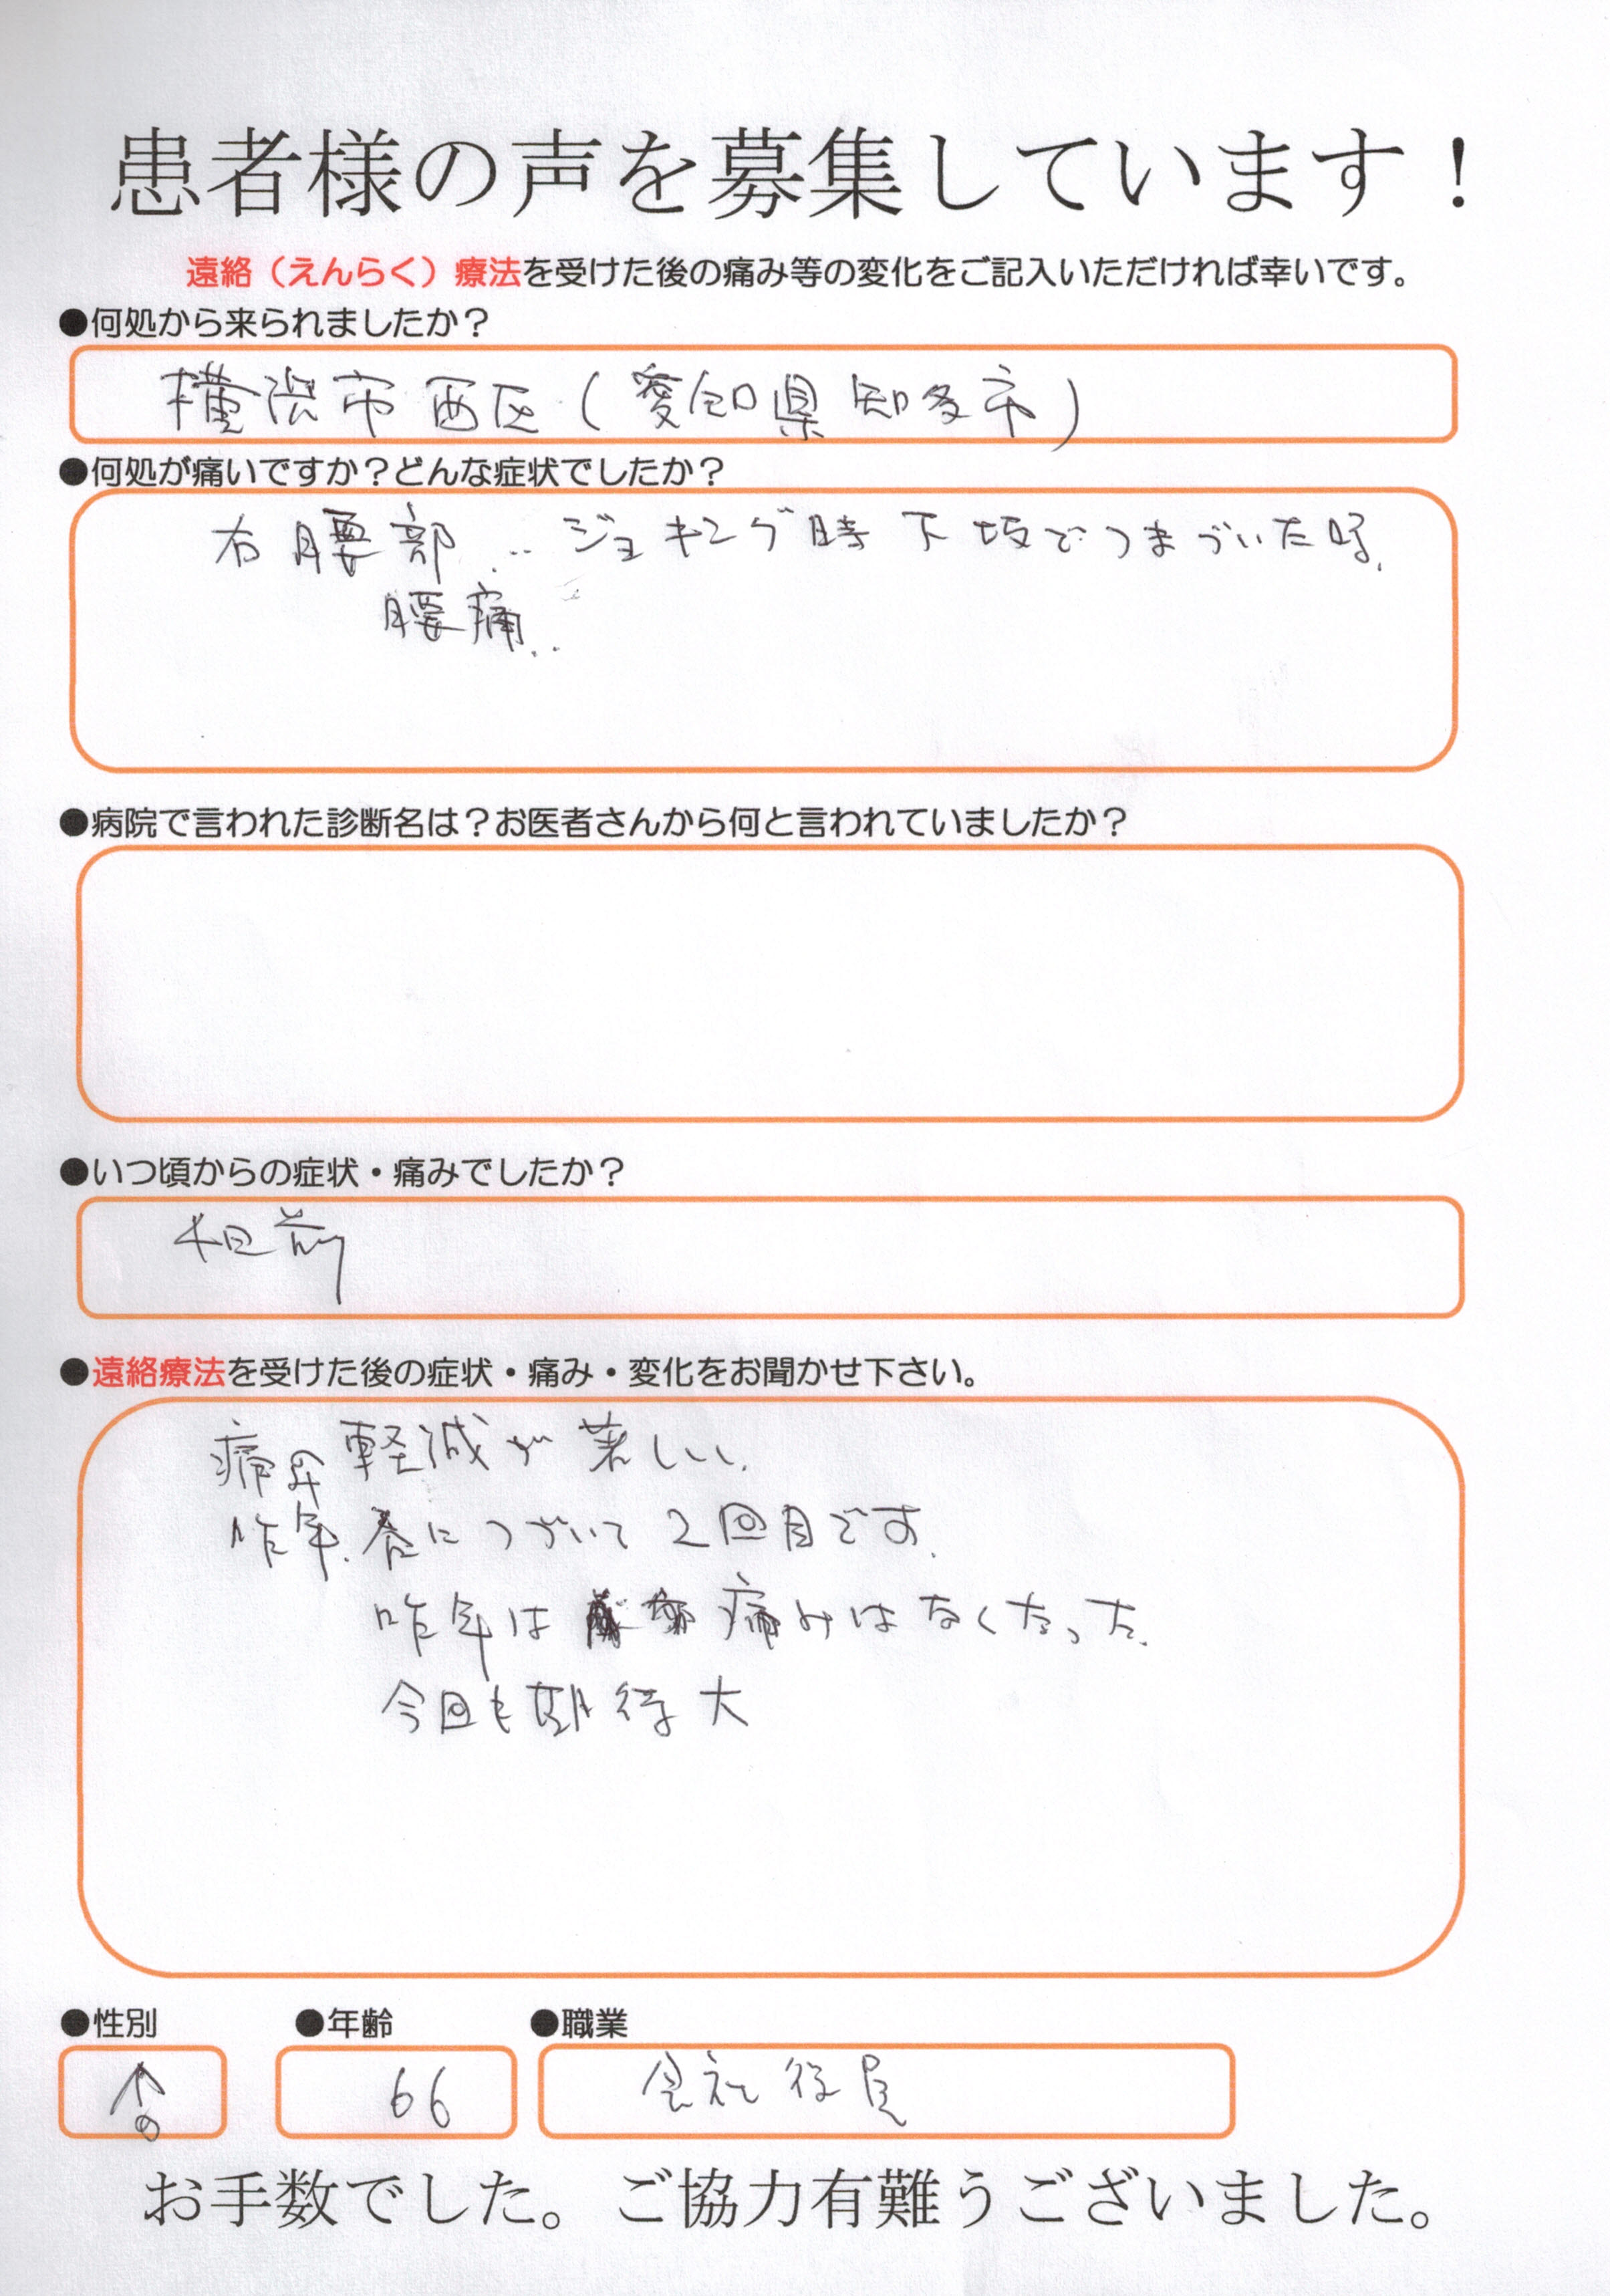 患者様の声を募集しています！
遠絡（えんらく）療法を受けた後の痛み等の変化をご記入いただければ幸いです。
●何処から来られましたか？
横浜市西区(愛知県知多市)
●何処が痛いですか？どんな症状でしたか？
右腰部‥ジョギング時下坂でつまづいた時、
腰痛‥
●病院で言われた診断名は？お医者さんから何と言われていましたか？
●いつ頃からの症状・痛みでしたか？
前
●遠絡療法を受けた後の症状・痛み・変化をお聞かせ下さい。
痛み軽減が著しい。
昨年、春につづいて2回目です。
昨年は 痛みはなくなった。
今回も期待大
●性別 ●年齢 ●職業
♂ 66 会社役員
お手数でした。ご協力有難うございました。